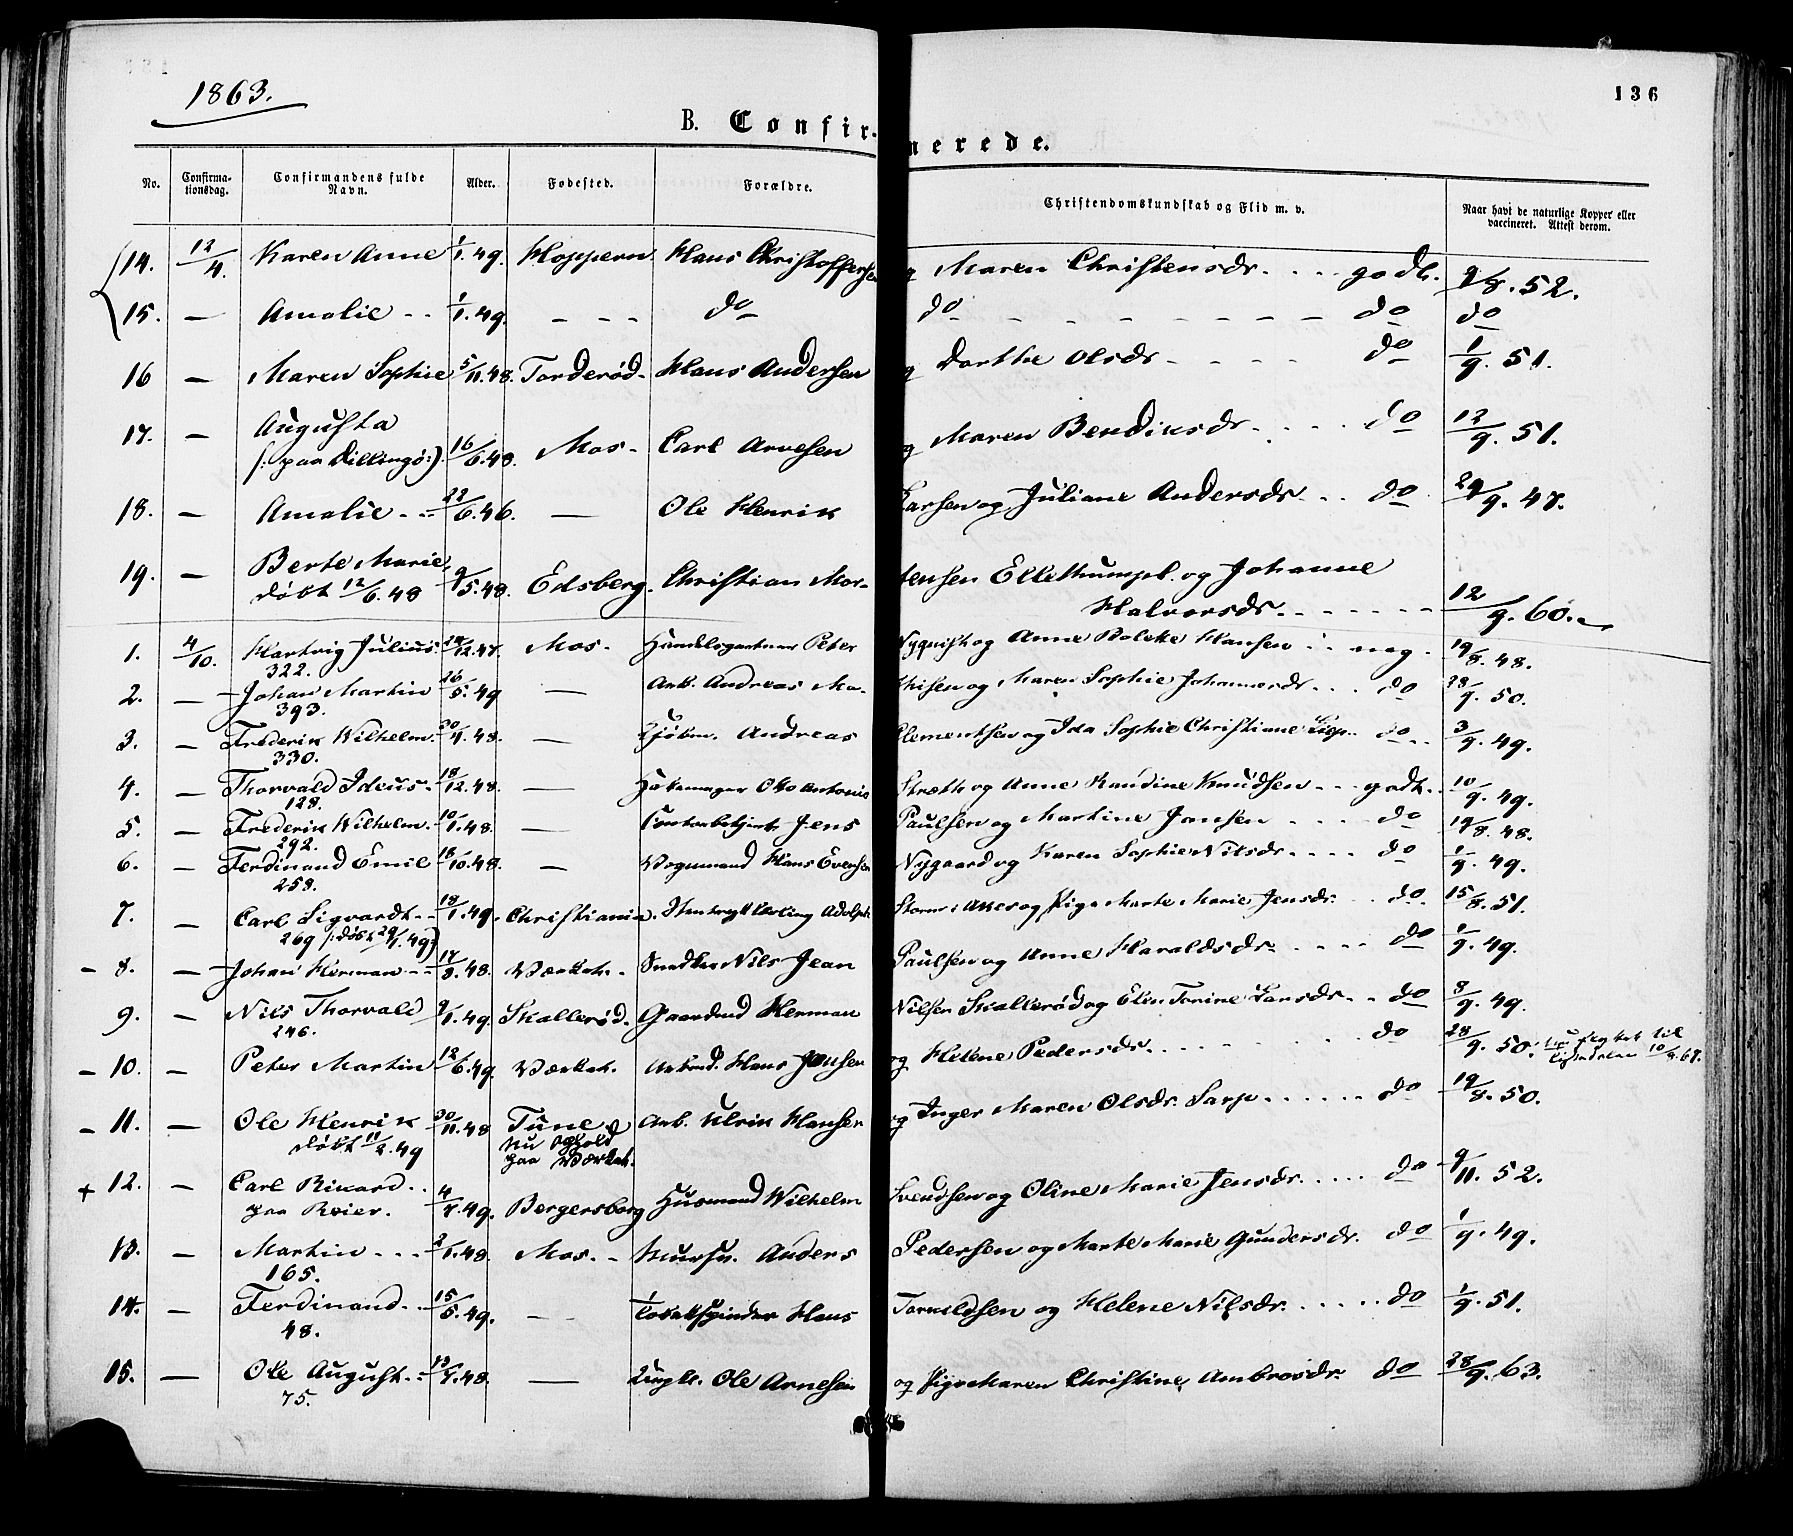 1863.
136
B. Confir- merede.
No. Confirma-tionsdag. Confirmandens fulde Navn. Alder. Fødested. Forældre. Christendomskundskab og Flid m. v. Naar havt de naturlige Kopper eller vaccineret. Attest derom.
14. 12/4. Karen Anne 1/1.49. Kloppern Hans Christoffersen og Maren Christensdr. . . . godt. 9/8.52.
15. — Amalie - - 1/1.49. - - - do do - - - - - - - do do
16 — Maren Sophie 5/11.48. Torderød- Hans Andersen og Dorthe Olsdr - - - - do 1/9.51.
17. — Augusta
(: paa Dillingø:). 16/6.48. Mos- Carl Arvesen og Maren Bendiksdr. . . . . do 12/9.51.
18. — Amalie - - 22/6.46. — Ole Henrik Larsen og Juliane Andersdr. . . do 29/9.47.
19. — Berte Marie,
døbt 12/6.48 9/5.48. Edsberg. Christian Mor-tensen Elkethumpl. og Johanne
Halvorsdr. - - - - - - 12/9.60.
1. 4/10. Hartvig Julius. 29/12.47. Mos- Handelsgartner Peter Nyquist og Anne Bolette Hansen . . meg. 19/8.48.
322.
2. — Johan Martin 16/5.49 — Arb. Andreas Ma-thisen og Maren Sophie Johannesdr. . . do 28/9.50.
393.
3. — Frederik Wilhelm. 30/4.48. — Kjøbm. Andreas Clementsen og Ida Sophie Christiane - - do - - 3/9.49.
330.
4. — Thorvald Ideus- 18/12.48. — Antonis Stræth og Anne Randine Knudsen - - godt. . 10/9.49.
128.
5. — Frederik Wilhelm. 10/1.48. — Jens Paulsen og Martine Jansen . . . . do 19/8.48.
292.
6. — Ferdinand Emil 18/10.48. — Vognmand Hans Evensen Nygaard og Karen Sophie Nilsdr. . . . . do 1/9.49.
258.
7. — Carl Sigvardt- - 18/1.49. Christiania. Adolph og Pige Marte Marie Jensdr. . . do. 15/8.51.
269 (: døbt 29/1.49)
- 8. — Johan Herman - - 17/8.48. Værket. - Snedker Nils Jean Paulsen og Anne Haraldsdr. . . . . do 1/9.49.
9. — Nils Thorvald 9/1.49. Skallerød. Gaardmd Herman Nilsen Skallerød og Elen Torine Larsdr. - - do 8/9.49.
246.
- 10. — Peter Martin 12/6.49. Værket. Arbmd. Hans Jensen og Helene Pedersdr. . . . . . . . do 28/9.50. flyttet til 10/9.67.
- 11. — Ole Henrik 30/11.48 Tune Arb. Ulrik Hansen og Inger Maren Olsdr. Sarp . . . . . . do 19/8.50.
døbt 11/2.49 nu Ophold
paa Værket.
+ 12. — Carl Rikard. . 4/7.49. Bergersborg Husmand Wilhelm Svendsen og Oline Marie Jensdr. . . . . do 9/11.52.
paa Reier.
13. — Martin - - - 2/1.48. Mos. - Mursv. Anders Pedersen og Marte Marie Gundersdr. do 1/9.49.
165.
14. — Ferdinand. . 15/5.49. — Tobakspinder Hans Torkildsen og Helene Nilsdr. . . . . . do 1/9.51.
48.
15. — Ole August. - 13/7.48. — Ungk. Ole Arnesen og Pige Karen Christine Ambrosdr. do 28/9.63.
75.